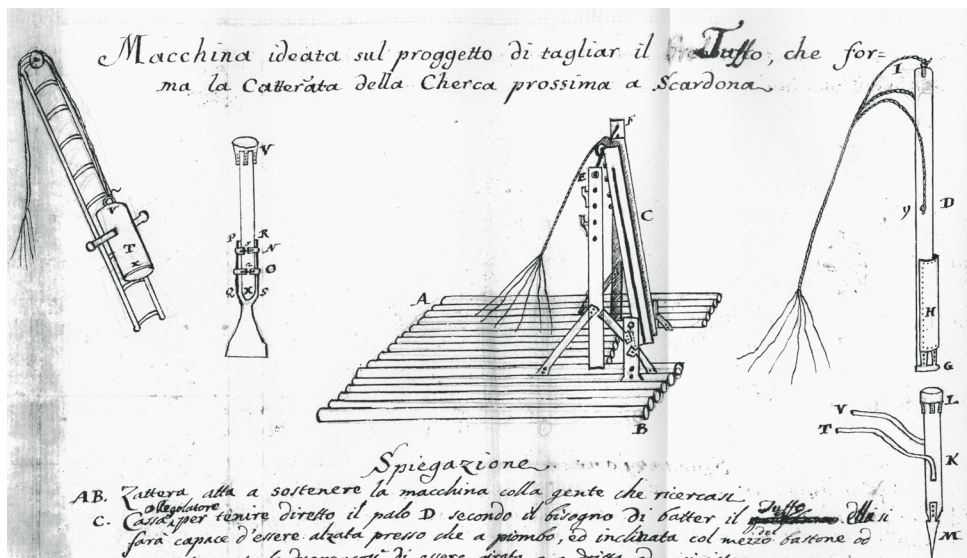 Macchina ideata sul proggetto di tagliar il Tuffo, che for=
ma la Catterata della Cherca prossima a Scardona
I
F
V
E
D
C
V
y
P R
N
T
O
x
Q X S
A
H
G
B
L
V
T
K
M
Spiegazione
AB. Zattera atta a sostenere la macchina colla gente che ricercasi
o Regolatore
Tuffo
C. Cassa, per tenire diretto il palo D secondo il bisogno di batter il
del
farà capace d'essere alzata presso che a piombo, ed inclinata col mezzo bastone od